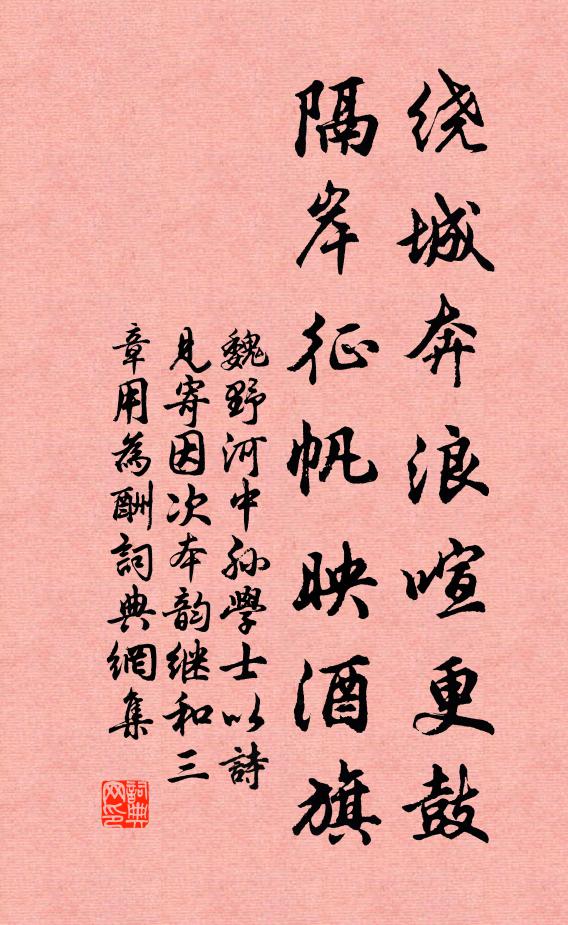 绕城奔浪喧更鼓
隔岸征帆映酒旗
魏野河中孙學士以詩
見寄因次本韵继和三
章用為酬詞典網集
詞典
网印